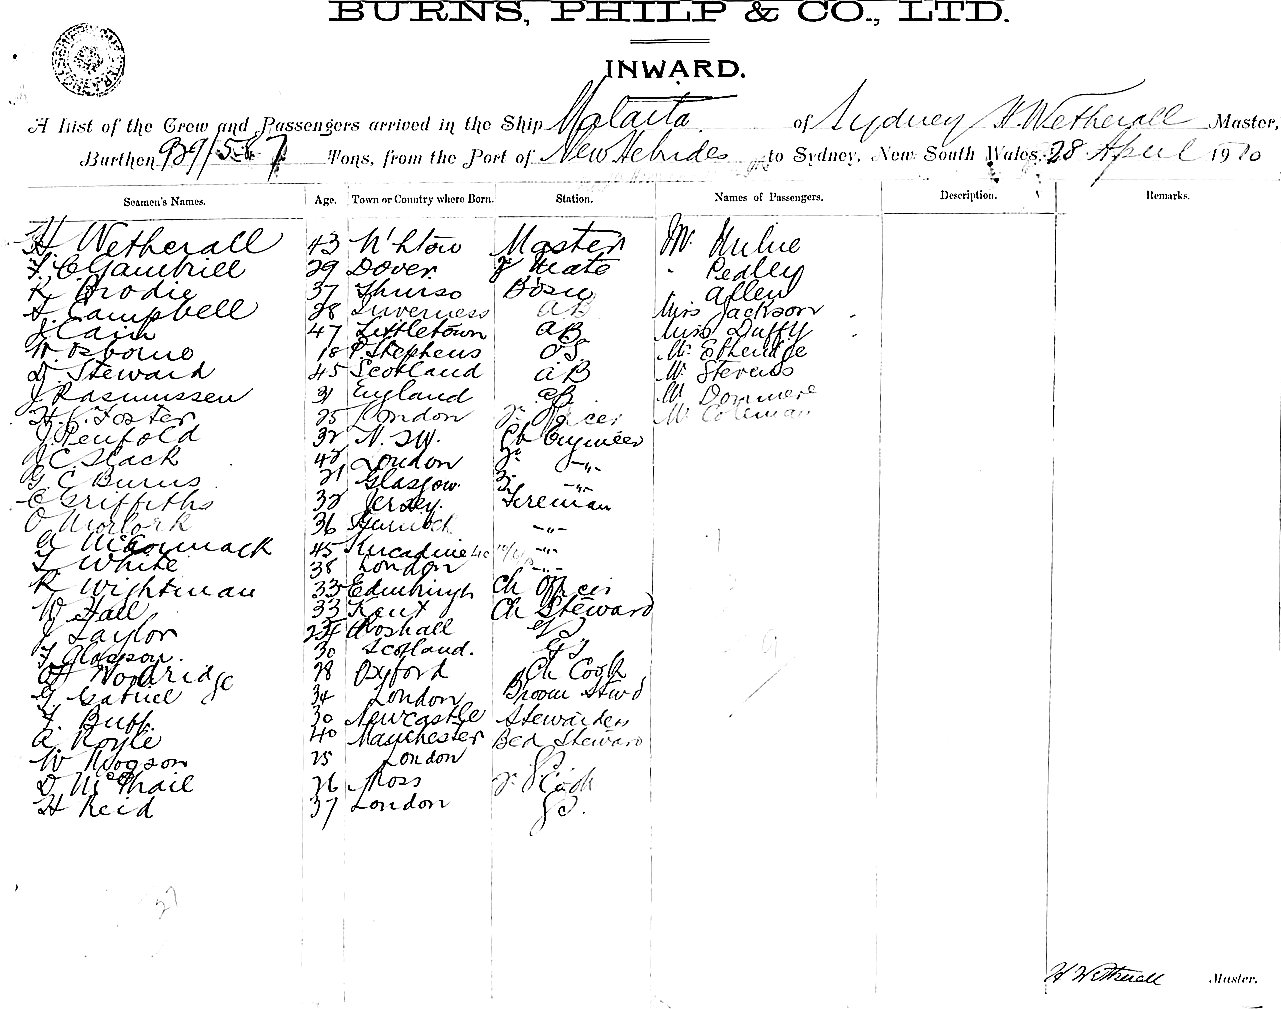 BURNS, PHILP & CO., LTD.
INWARD.
A List of the Crew and Passengers arrived in the Ship Malaita of Sydney H. Wetherall Master,
Burthen 929/587 Tons, from the Port of New Hebrides to Sydney, New South Wales, 28 April 1910
Seamen's Names. Age. Town or Country where Born. Station. Names of Passengers. Description. Remarks.
H Wetherall 43 W'htow Master Mr. Milne
F. C. Gambrill 29 Dover 2 Mate " Pedley
R. Brodie 37 Thurso Bosun " Allen
Campbell 28 Inverness AB Miss Jackson
J Cain 47 Littletown AB Miss Duffy
W. Osborne 18 P Stephens OS Mr Etheridge
D Steward 45 Scotland AB Mr Stevens
J Rasmussen 31 England AB Mr
H. J. Foster 25 London 3r Officer Mr Coleman
J. Penfold 32 N.S.W. Ch Engineer
J C. Slack 42 London 2r -"-
G C Burns 21 Glasgow. 3. -"-
C Griffiths 32 Jersey. Fireman
O 36 -"-
McCormack 45 -"-
T White 38 London -"-
R Wightman 33 Edinburgh Ch Officer
W Hall 33 Kent Ch Steward
J Taylor GS
F. Glasson. 30 Scotland. GS
Woolridge 28 Oxford Ch Cook
G. Gabriel 34 London Broom Stwd
F. Buff. 30 Newcastle Stewardess
A. Royle 40 Manchester Bed Steward
W Hodgson 25 London GS
D McPhail 26 Moss 2r Cook
H Reid 37 London GS.
27
H Wetherall Master.